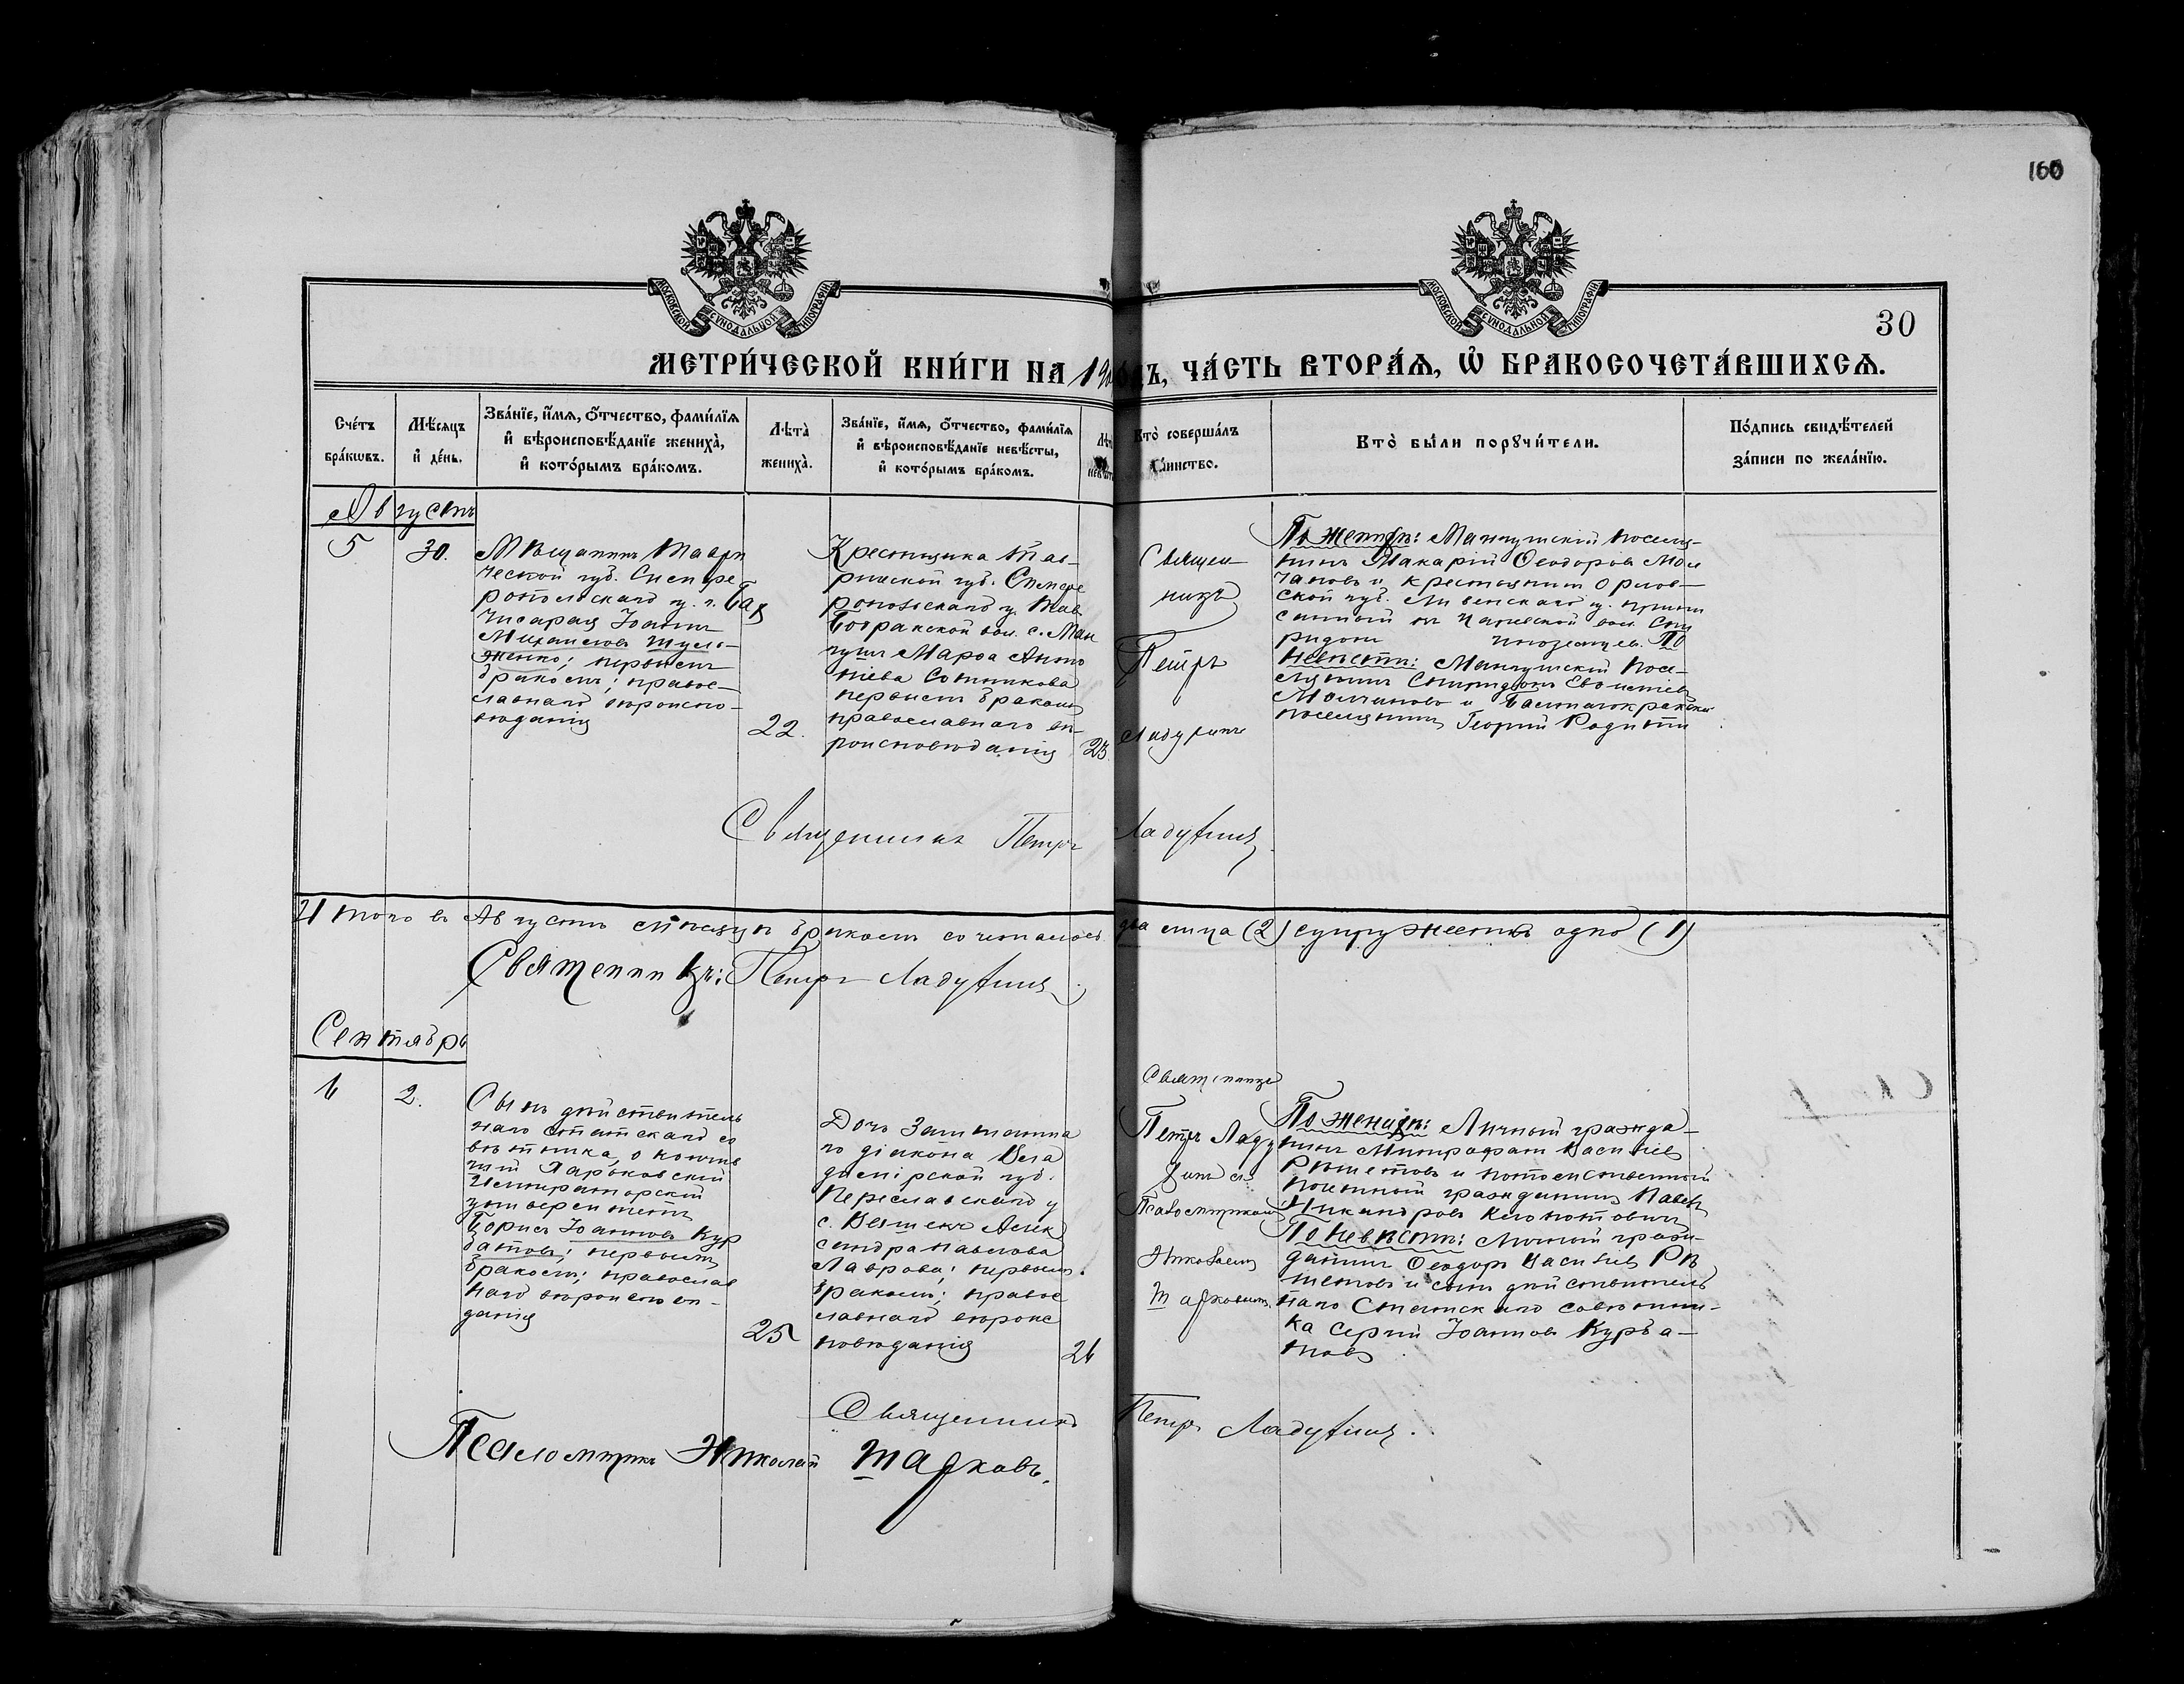 160
МОСКОВСКОЙ СѴНОДАЛЬНОЙ ТИПОГРАФІИ
МОСКОВСКОЙ СѴНОДАЛЬНОЙ ТИПОГРАФІИ
30
МЕТРИ́ЧЕСКОЙ КНИ́ГИ НА 190 ГОДЪ, ЧА́СТЬ ВТОРА́Ѧ, Ѡ҆ БРАКОСОЧЕТА́ВШИХСѦ.
Сче́тъ
бра́кѡвъ.
Мѣ́сяцъ
и҆ де́нь.
Зва́нїе, и҆́мѧ, ѻ҆́тчество, фами́лїѧ
и҆ вѣроисповѣ́данїе жениха̀,
и҆ кото́рымъ бра́комъ.
Лѣта̀
жениха̀.
Зва́нїе, и҆́мѧ, ѻ҆́тчество, фами́лїѧ
и҆ вѣроисповѣ́данїе невѣ́сты,
и҆ кото́рымъ бра́комъ.
Кто̀ соверша́лъ
та́инство.
Кто̀ бы́ли порꙋчи́тели.
По́дпись свидѣ́телей
за́писи по жела́нїю.
Августъ
5
30.
Мѣщанинъ Таври
ческой губ. Симфе
ропольскаго у. г. Бах
чисарая Іоаннъ
Михаиловъ
первымъ
бракомъ; право-
славнаго вѣроиспо-
вѣданія
22.
Крестьянка Тав-
рической губ. Симфе
ропольскаго у. Тав
Бодракской вол. с. Ман
гушъ Марѳа Анто
ніева Сотникова
первымъ бракомъ
православнаго вѣ-
роисповѣданія
23.
Священ-
никъ
Петръ
Ладухинъ
По женихѣ: Мангушскій посел-
нинъ Макарій Ѳеодоровъ Мол
чановъ и крестьянинъ Орлов-
ской губ. Ливенскаго у.
вол. Спи
ридонъ По
невѣстѣ: Мангушскій посе-
лянинъ Спиридонъ
Молчановъ и
поселянинъ Георгій
Священникъ Петръ Ладухинъ
Итого въ Августѣ мѣсяцѣ бракомъ сочеталось два лица (2) супружество одно (1)
Священникъ: Петръ Ладухинъ
Сентябрь
6
2.
Сынъ дѣйствитель
наго статскаго со
вѣтника, окончив
шій Харьковскій
Императорскій
университетъ
Борисъ Іоанновъ Кур
батовъ; первымъ
бракомъ; православ
наго вѣроисповѣ-
данія
25
Дочь заштатна
го діакона Вла
димірской губ.
Переславскаго у
с. Алек
сандра Павлова
Лаврова; первымъ
бракомъ; право
славнаго вѣроис
повѣданія
26
Священникъ
Петръ Ладу
хинъ съ
Псаломщикомъ
Николаемъ
По женихѣ: Личный гражда-
нинъ Митрофанъ Васильевъ
Рѣшетовъ и потомственный
почетный гражданинъ Павелъ
Никандровъ
По невѣстѣ: личный граж-
данинъ Ѳеодоръ Васильевъ Рѣ
шетовъ и сынъ дѣйствитель
наго Статскаго совѣтни-
ка Сергій Іоанновъ Курба-
товъ
Священникъ Петръ Ладухинъ.
Псаломщикъ Николай